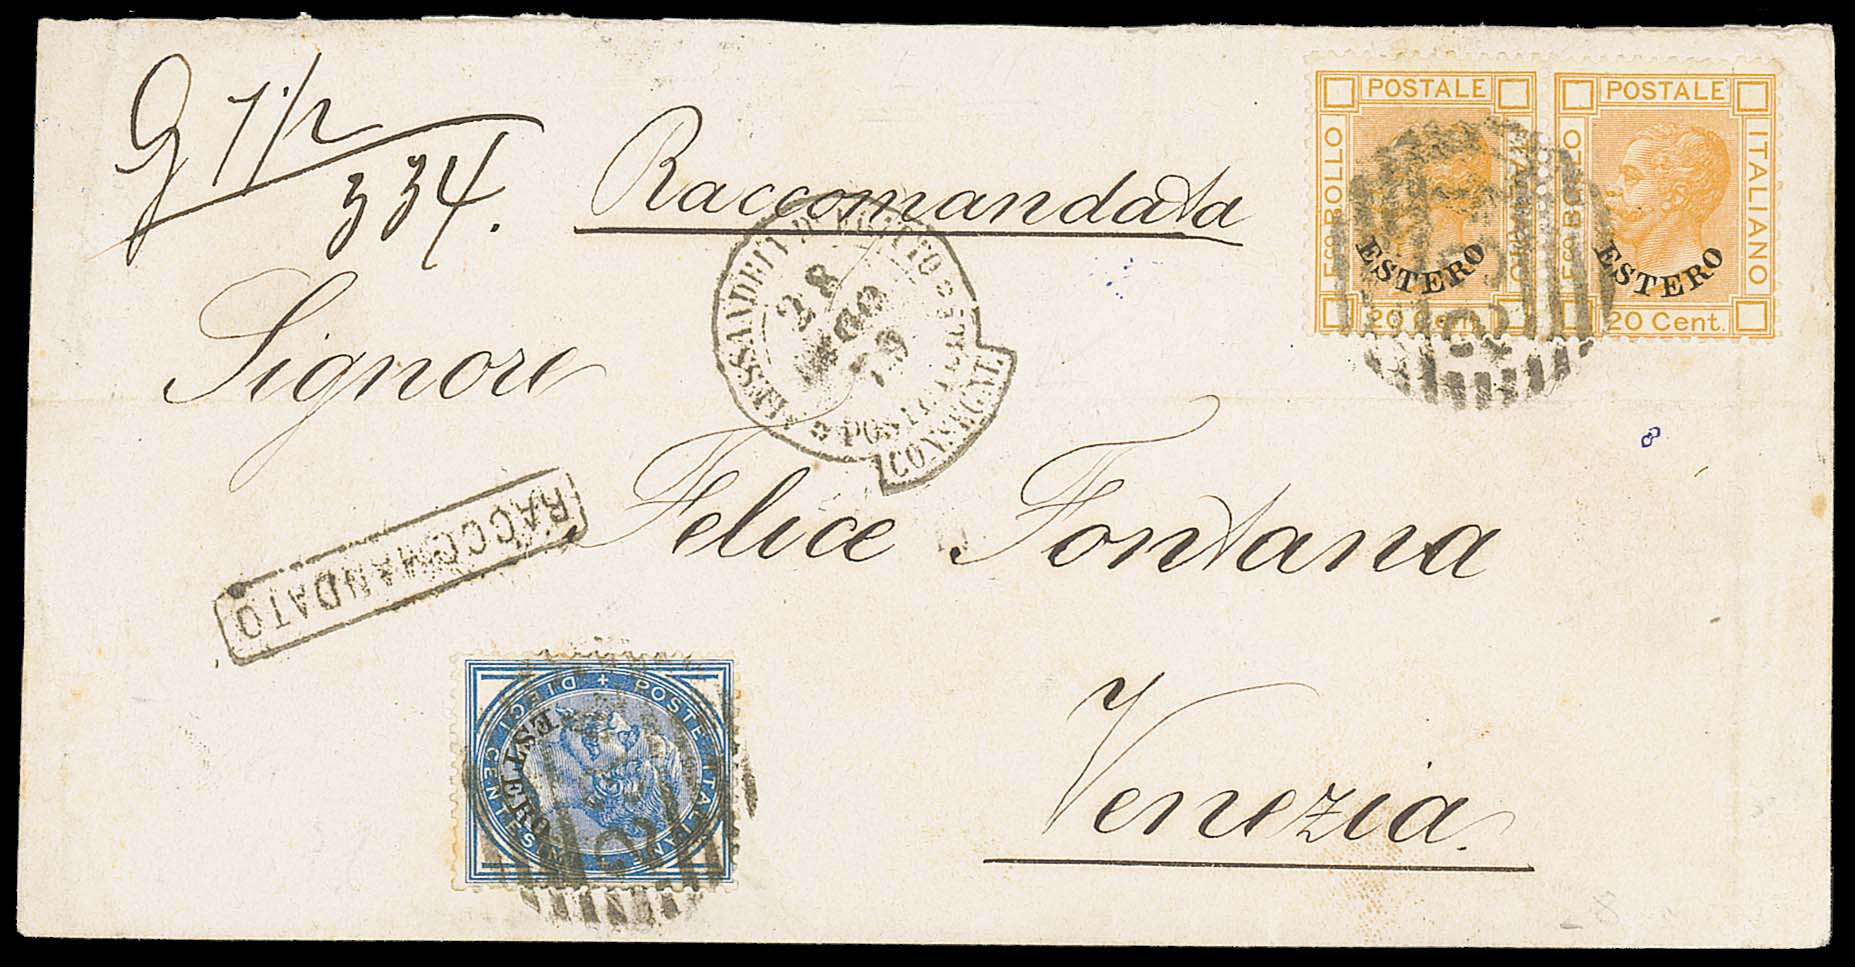 g 7 1/2
334.
Raccomandata
POSTALE
FCO BOLLO
ITALIANO
ESTERO
20 Cent.
POSTALE
FCO BOLLO
ITALIANO
ESTERO
20 Cent.
ALESSANDRIA D'EGITTO
POSTE ITALIANE
28
AGO
79
CONSEGNE
Signore
Felice Fontana
Venezia.
RACCOMANDATO
POSTE ITALIANE
DIECI CENTESIMI
ESTERO
8